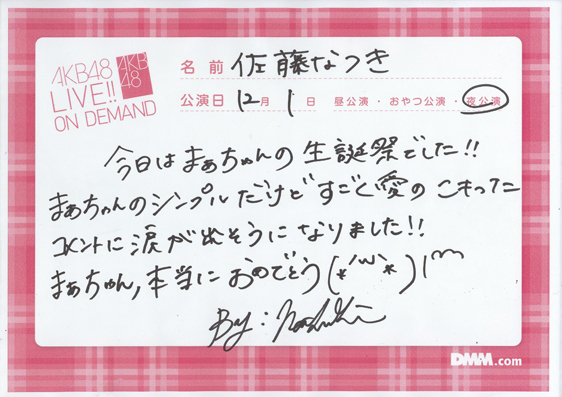 AKB48
LIVE!!
ON DEMAND
AKB
48
名前 佐藤なつき
公演日 12月 1日 昼公演・おやつ公演・夜公演
今日はまぁちゃんの生誕祭でした!!
まぁちゃんのシンプルだけどすごく愛のこもった
コメントに涙が出そうになりました!!
まぁちゃん,本当におめでとう(*´ω`*)
By: Natsuki
DMM.com